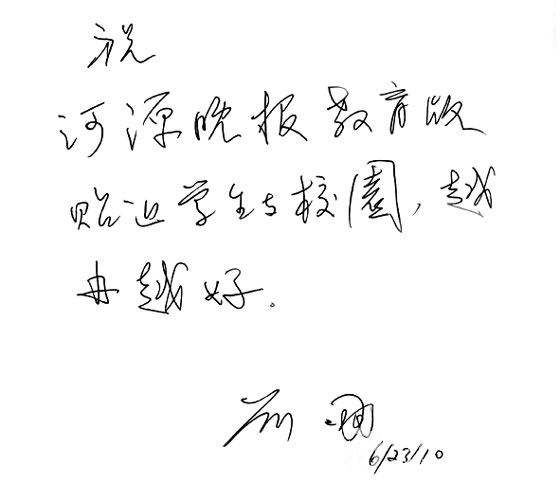 祝
河源晚报教育版
贴近学生与校園,越
办越好.
6/23/10